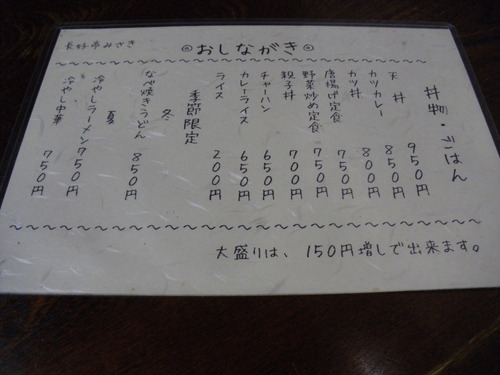 長好亭みさき
◎おしながき◎
丼物・ごはん
天丼 950円
カツカレー 850円
カツ丼 800円
唐揚げ定食 750円
野菜炒め定食 750円
親子丼 700円
チャーハン 650円
カレーライス 650円
ライス 200円
季節限定
冬
なべ焼きうどん 850円
夏
冷やしラーメン 750円
冷やし中華 750円
大盛りは、150円増しで出来ます。